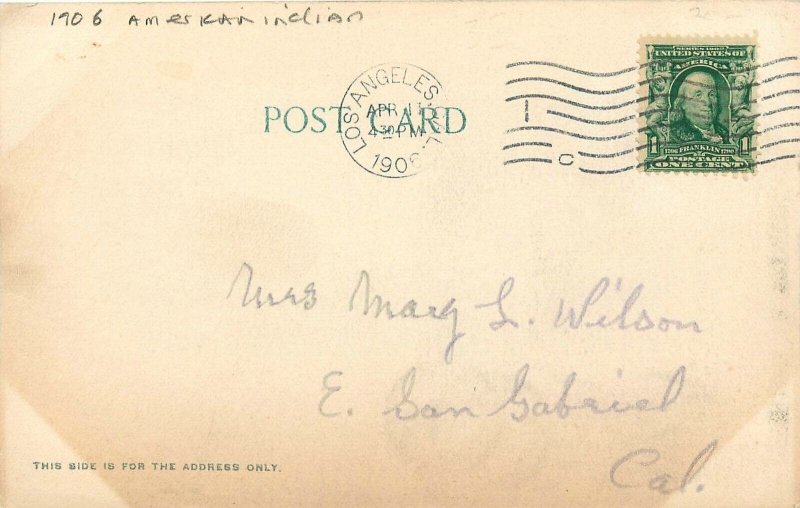 1906 American indian
POST CARD
LOS ANGELES, CAL.
APR 11
4 30 PM
1906
1
C
SERIES 1902
UNITED STATES OF
AMERICA
1706 FRANKLIN 1790
1 POSTAGE 1
ONE CENT
Mrs Mary L. Wilson
E. San Gabriel
Cal.
THIS SIDE IS FOR THE ADDRESS ONLY.